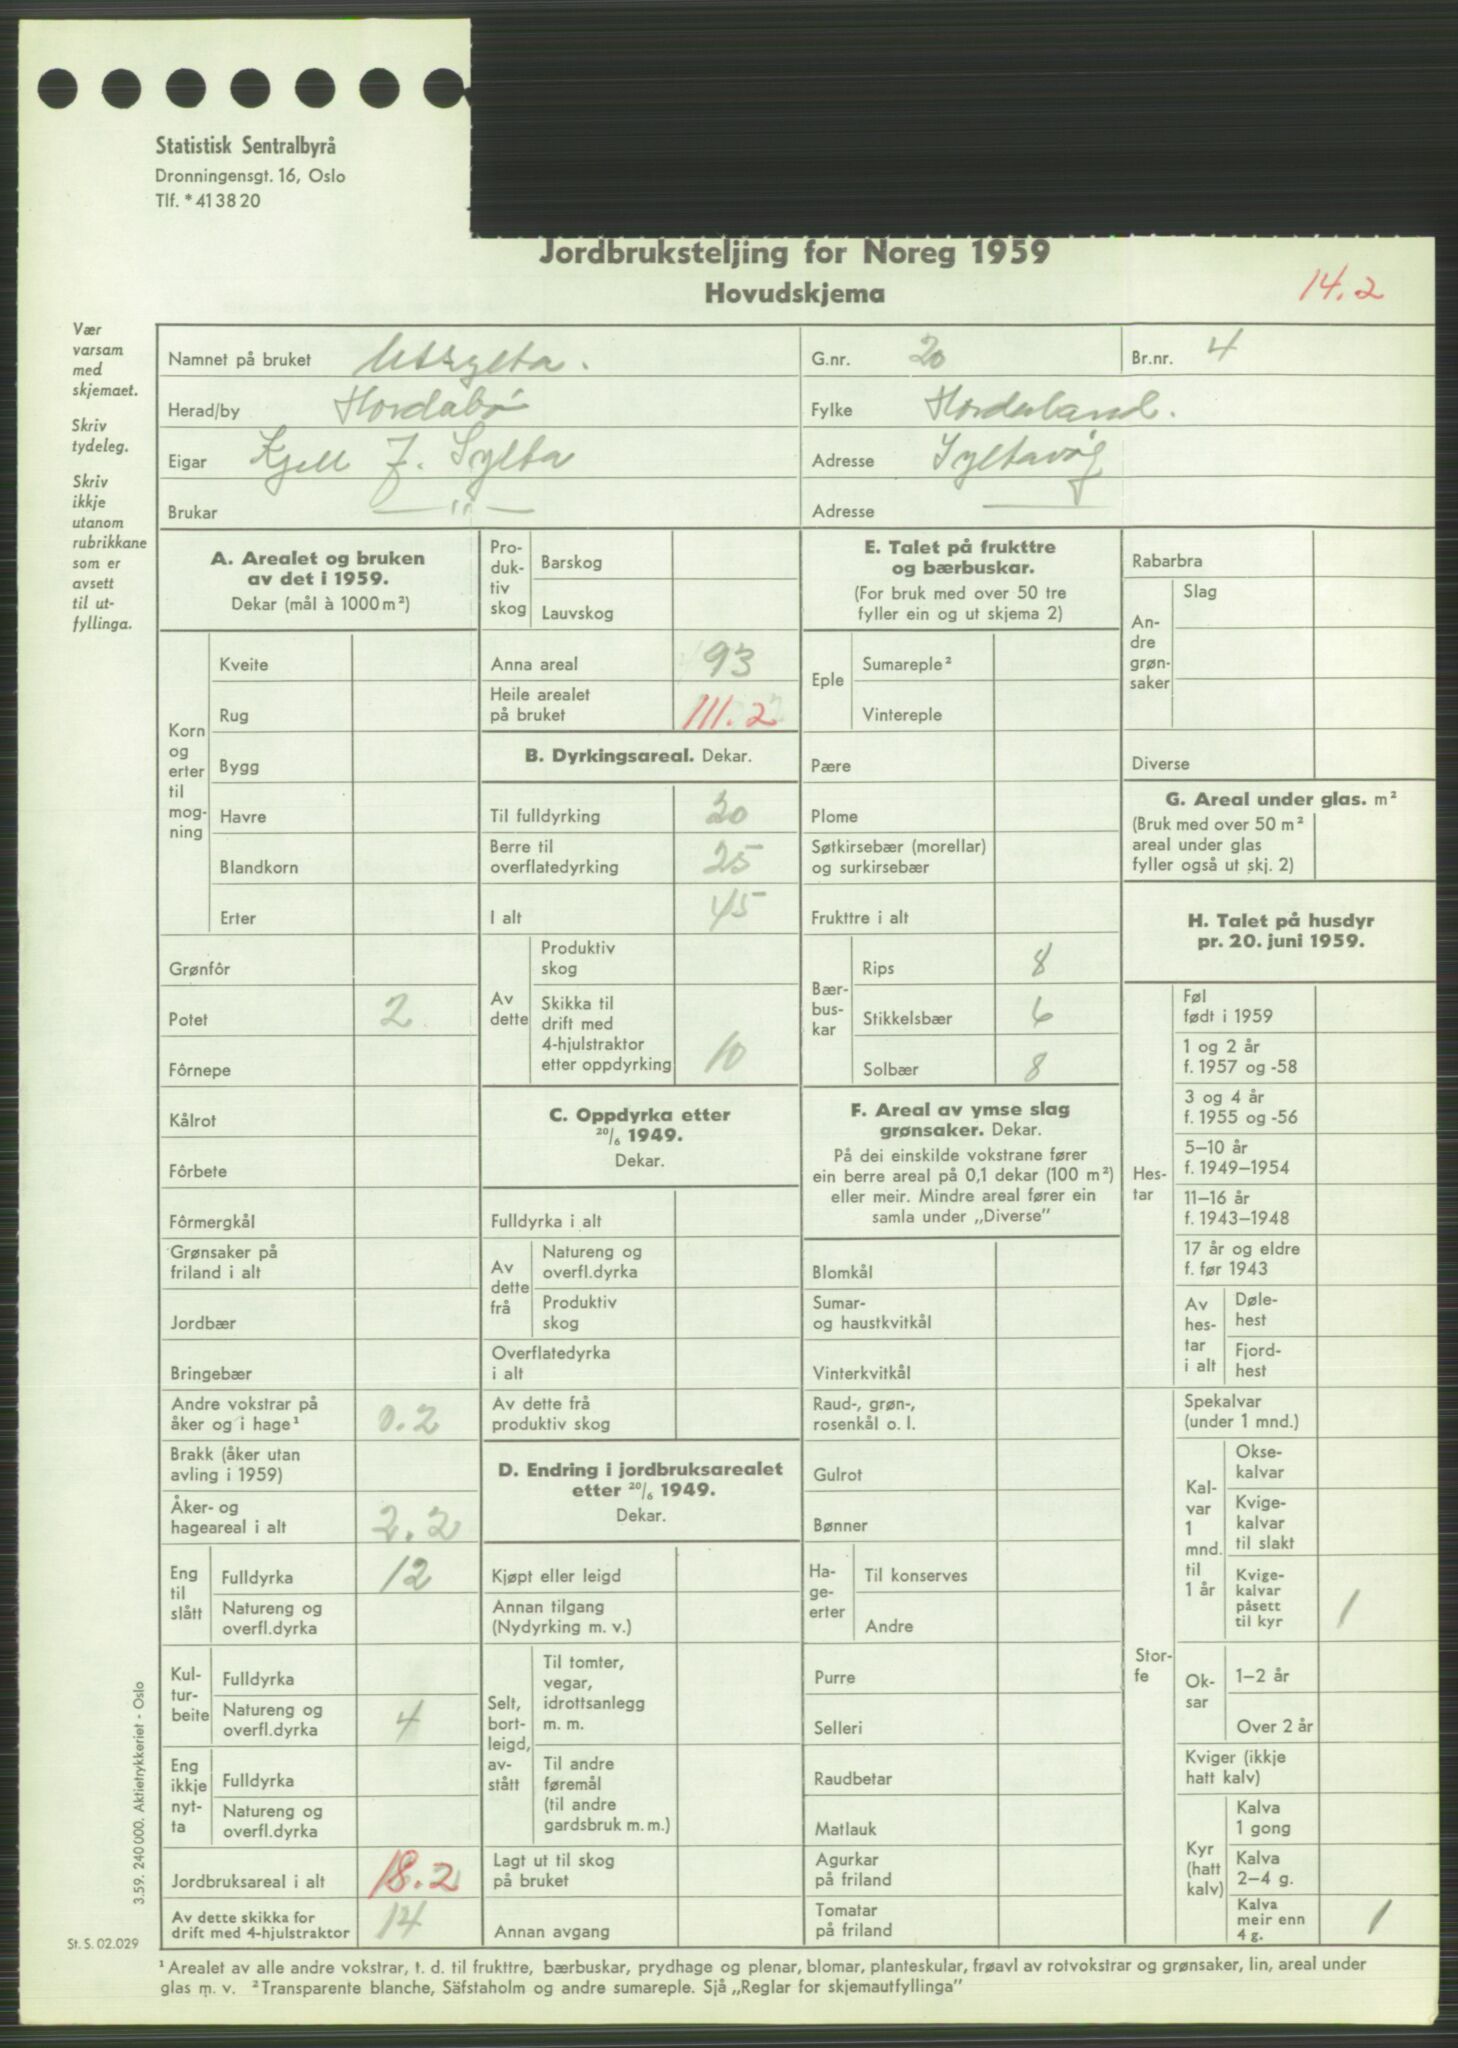 Statistisk Sentralbyrå
Dronningensgt. 16, Oslo
Tlf. * 41 38 20
Jordbruksteljing for Noreg 1959
Hovudskjema
14.2
Vær
varsam
med
skjemaet.
Skriv
tydeleg.
Skriv
ikkje
utanom
rubrikkane
som er
avsett
til ut-
fyllinga.
Namnet på bruket Utsylta.
G.nr. 20
Br.nr. 4
Herad/by Hordabø
Fylke Hordaland.
Eigar Kjell J. Sylta
Adresse Syltavåg
Brukar — " —
Adresse —
A. Arealet og bruken
av det i 1959.
Dekar (mål à 1000 m²)
Korn
og
erter
til
mog-
ning
Kveite
Rug
Bygg
Havre
Blandkorn
Erter
Grønfôr
Potet 2
Fôrnepe
Kålrot
Fôrbete
Fôrmergkål
Grønsaker på
friland i alt
Jordbær
Bringebær
Andre vokstrar på
åker og i hage¹ 0.2
Brakk (åker utan
avling i 1959)
Åker- og
hageareal i alt 2.2
Eng
til
slått
Fulldyrka 12
Natureng og
overfl.dyrka
Kul-
tur-
beite
Fulldyrka
Natureng og
overfl.dyrka 4
Eng
ikkje
nyt-
ta
Fulldyrka
Natureng og
overfl.dyrka
Jordbruksareal i alt 18.2
Av dette skikka for
drift med 4-hjulstraktor 14
Pro-
duk-
tiv
skog
Barskog
Lauvskog
Anna areal 93
Heile arealet
på bruket 111.2
B. Dyrkingsareal. Dekar.
Til fulldyrking 20
Berre til
overflatedyrking 25
I alt 45
Av
dette
Produktiv
skog
Skikka til
drift med
4-hjulstraktor
etter oppdyrking 10
C. Oppdyrka etter
20/6 1949.
Dekar.
Fulldyrka i alt
Av
dette
frå
Natureng og
overfl.dyrka
Produktiv
skog
Overflatedyrka
i alt
Av dette frå
produktiv skog
D. Endring i jordbruksarealet
etter 20/6 1949.
Dekar.
Kjøpt eller leigd
Annan tilgang
(Nydyrking m. v.)
Selt,
bort-
leigd,
av-
stått
Til tomter,
vegar,
idrottsanlegg
m. m.
Til andre
føremål
(til andre
gardsbruk m. m.)
Lagt ut til skog
på bruket
Annan avgang
E. Talet på frukttre
og bærbuskar.
(For bruk med over 50 tre
fyller ein og ut skjema 2)
Eple
Sumareple²
Vintereple
Pære
Plome
Søtkirsebær (morellar)
og surkirsebær
Frukttre i alt
Bær-
bus-
kar
Rips 8
Stikkelsbær 6
Solbær 8
F. Areal av ymse slag
grønsaker. Dekar.
På dei einskilde vokstrane fører
ein berre areal på 0,1 dekar (100 m²)
eller meir. Mindre areal fører ein
samla under „Diverse”
Blomkål
Sumar-
og haustkvitkål
Vinterkvitkål
Raud-, grøn-,
rosenkål o. l.
Gulrot
Bønner
Ha-
ge-
erter
Til konserves
Andre
Purre
Selleri
Raudbetar
Matlauk
Agurkar
på friland
Tomatar
på friland
Rabarbra
An-
dre
grøn-
saker
Slag
Diverse
G. Areal under glas. m²
(Bruk med over 50 m²
areal under glas
fyller også ut skj. 2)
H. Talet på husdyr
pr. 20. juni 1959.
Hes-
tar
Føl
født i 1959
1 og 2 år
f. 1957 og -58
3 og 4 år
f. 1955 og -56
5–10 år
f. 1949–1954
11–16 år
f. 1943–1948
17 år og eldre
f. før 1943
Av
hes-
tar
i alt
Døle-
hest
Fjord-
hest
Stor-
fe
Spekalvar
(under 1 mnd.)
Kal-
var
1
mnd.
til
1 år
Okse-
kalvar
Kvige-
kalvar
til slakt
Kvige-
kalvar
påsett
til kyr 1
Ok-
sar
1–2 år
Over 2 år
Kviger (ikkje
hatt kalv)
Kyr
(hatt
kalv)
Kalva
1 gong
Kalva
2–4 g.
Kalva
meir enn
4 g. 1
3.59. 240 000. Aktietrykkeriet - Oslo
St. S. 02.029
¹ Arealet av alle andre vokstrar, t. d. til frukttre, bærbuskar, prydhage og plenar, blomar, planteskular, frøavl av rotvokstrar og grønsaker, lin, areal under
glas m. v. ² Transparente blanche, Säfstaholm og andre sumareple. Sjå „Reglar for skjemautfyllinga”